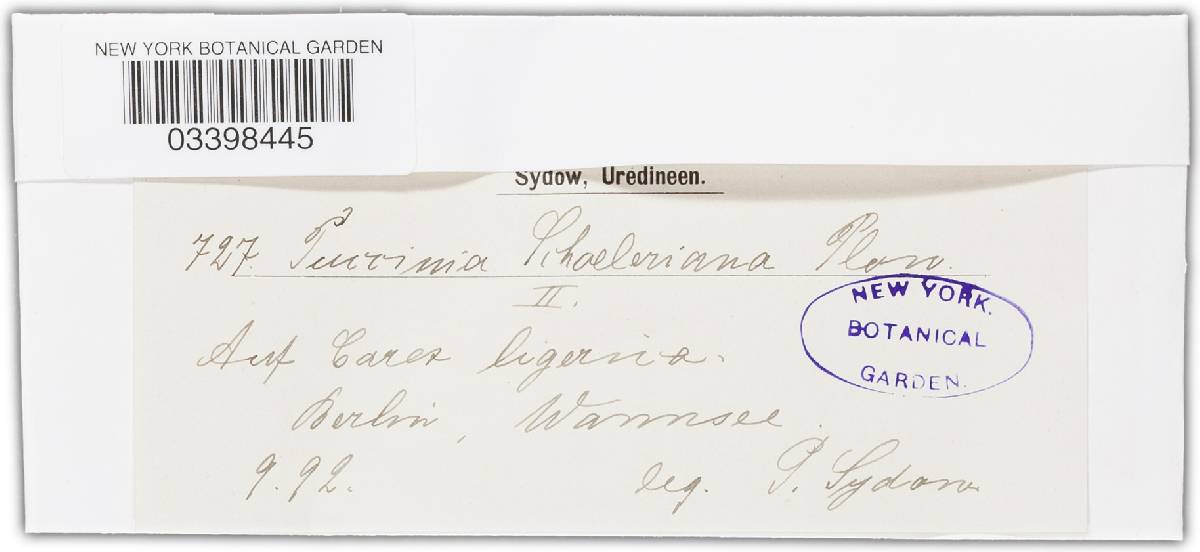 NEW YORK BOTANICAL GARDEN
03398445
Sydow, Uredineen.
727. Puccinia Schoeleriana Plow.
II.
Auf Carex ligerica.
Berlin, Wannsee.
9. 92.
leg. P. Sydow
NEW YORK.
BOTANICAL
GARDEN.